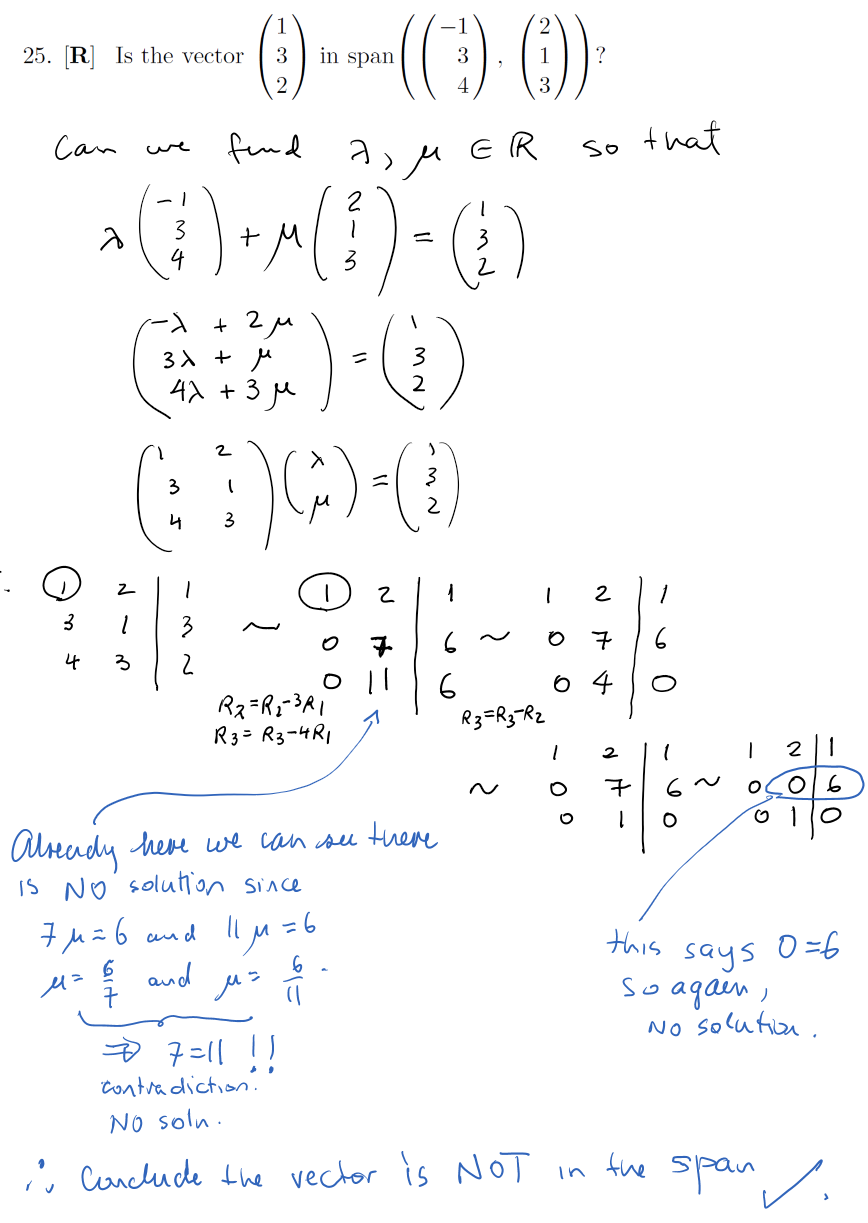 25. [R] Is the vector (1 3 2) in span((−1 3 4), (2 1 3))?
Can we find λ, μ ∈ ℝ so that
λ(−1 3 4) + μ(2 1 3) = (1 3 2)
(−λ + 2μ
3λ + μ
4λ + 3μ) = (1 3 2)
(1 2
3 1
4 3)(λ μ) = (1 3 2)
1 2 | 1 ~ 1 2 | 1 ~ 1 2 | 1
3 1 | 3 0 7 | 6 0 7 | 6
4 3 | 2 0 11 | 6 0 4 | 0
R2=R2−3R1
R3=R3−4R1
R3=R3−R2
~ 1 2 | 1 ~ 1 2 | 1
0 7 | 6 0 0 | 6
0 1 | 0 0 1 | 0
Already here we can see there
is NO solution since
7μ=6 and 11μ=6
μ=6/7 and μ=6/11.
⇒ 7=11 !!
contradiction.
NO soln.
this says 0=6
so again,
NO solution.
∴ Conclude the vector is NOT in the span ✓.